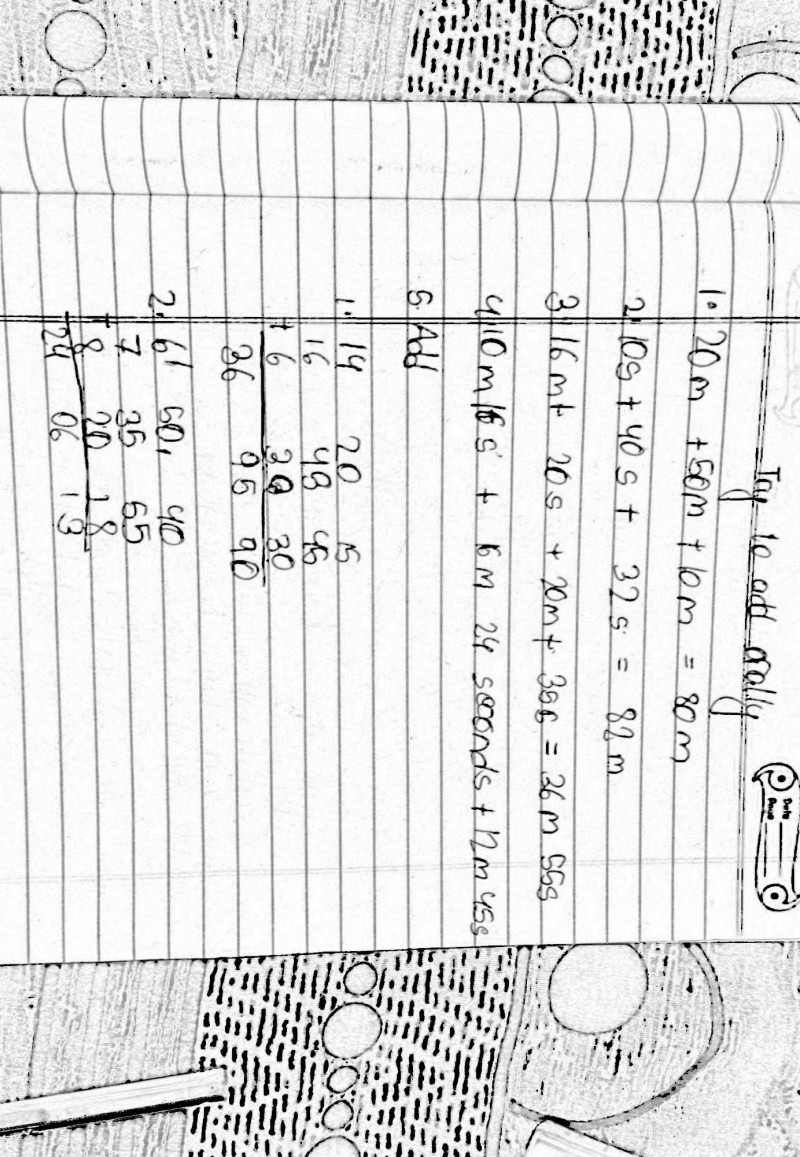 Date
Page
Try to add orally
1. 20m + 50m + 10m = 80m
2. 10s + 40s + 32s = 82m
3. 16m + 20s + 20m + 35s = 36m 55s
4. 10m 16s + 6m 24 seconds + 12m 45s
5. Add
1. 14 20 15
16 45 45
+ 6 30 30
36 95 90
2. 61 50, 40
7 35 55
+ 8 20 18
24 06 13